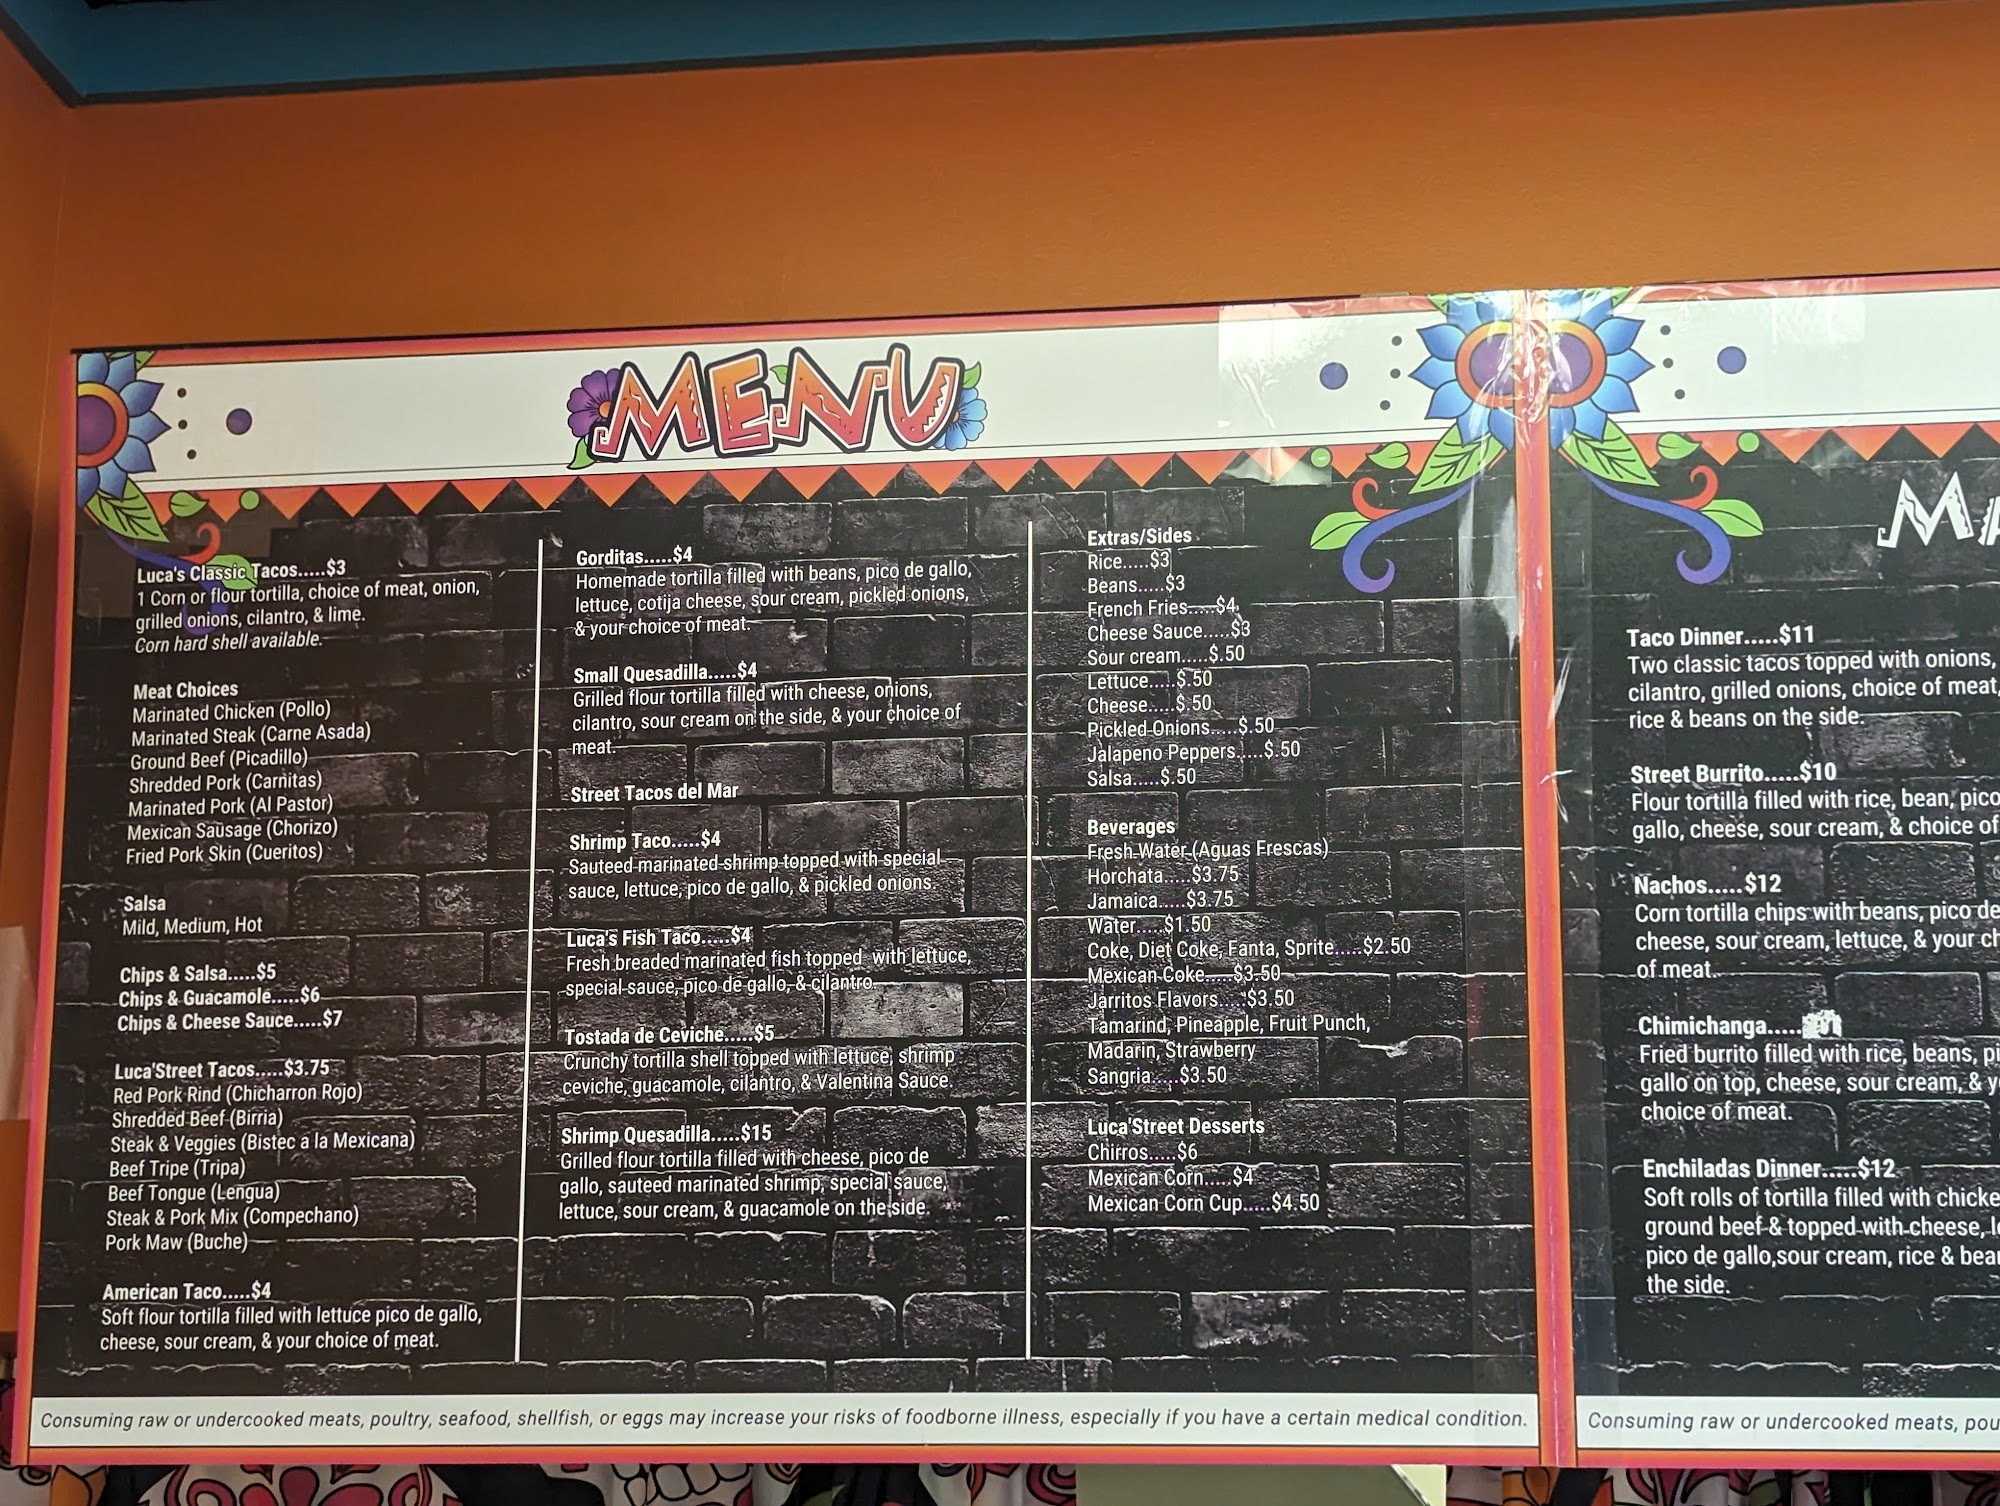 MENU
Luca's Classic Tacos.....$3
1 Corn or flour tortilla, choice of meat, onion,
grilled onions, cilantro, & lime.
Corn hard shell available.
Meat Choices
Marinated Chicken (Pollo)
Marinated Steak (Carne Asada)
Ground Beef (Picadillo)
Shredded Pork (Carnitas)
Marinated Pork (Al Pastor)
Mexican Sausage (Chorizo)
Fried Pork Skin (Cueritos)
Salsa
Mild, Medium, Hot
Chips & Salsa.....$5
Chips & Guacamole.....$6
Chips & Cheese Sauce.....$7
Luca'Street Tacos.....$3.75
Red Pork Rind (Chicharron Rojo)
Shredded Beef (Birria)
Steak & Veggies (Bistec a la Mexicana)
Beef Tripe (Tripa)
Beef Tongue (Lengua)
Steak & Pork Mix (Compechano)
Pork Maw (Buche)
American Taco.....$4
Soft flour tortilla filled with lettuce pico de gallo,
cheese, sour cream, & your choice of meat.
Gorditas.....$4
Homemade tortilla filled with beans, pico de gallo,
lettuce, cotija cheese, sour cream, pickled onions,
& your choice of meat.
Small Quesadilla.....$4
Grilled flour tortilla filled with cheese, onions,
cilantro, sour cream on the side, & your choice of
meat.
Street Tacos del Mar
Shrimp Taco.....$4
Sauteed marinated shrimp topped with special
sauce, lettuce, pico de gallo, & pickled onions.
Luca's Fish Taco.....$4
Fresh breaded marinated fish topped with lettuce,
special sauce, pico de gallo, & cilantro.
Tostada de Ceviche.....$5
Crunchy tortilla shell topped with lettuce, shrimp
ceviche, guacamole, cilantro, & Valentina Sauce.
Shrimp Quesadilla.....$15
Grilled flour tortilla filled with cheese, pico de
gallo, sauteed marinated shrimp, special sauce,
lettuce, sour cream, & guacamole on the side.
Extras/Sides
Rice.....$3
Beans.....$3
French Fries.....$4
Cheese Sauce.....$3
Sour cream.....$.50
Lettuce.....$.50
Cheese.....$.50
Pickled Onions.....$.50
Jalapeno Peppers.....$.50
Salsa.....$.50
Beverages
Fresh Water (Aguas Frescas)
Horchata.....$3.75
Jamaica.....$3.75
Water.....$1.50
Coke, Diet Coke, Fanta, Sprite.....$2.50
Mexican Coke.....$3.50
Jarritos Flavors.....$3.50
Tamarind, Pineapple, Fruit Punch,
Madarin, Strawberry
Sangria.....$3.50
Luca'Street Desserts
Chirros.....$6
Mexican Corn.....$4
Mexican Corn Cup.....$4.50
Consuming raw or undercooked meats, poultry, seafood, shellfish, or eggs may increase your risks of foodborne illness, especially if you have a certain medical condition.
Taco Dinner.....$11
Two classic tacos topped with onions,
cilantro, grilled onions, choice of meat,
rice & beans on the side.
Street Burrito.....$10
Flour tortilla filled with rice, bean, pico
gallo, cheese, sour cream, & choice of
Nachos.....$12
Corn tortilla chips with beans, pico de
cheese, sour cream, lettuce, & your
of meat.
Chimichanga.....
Fried burrito filled with rice, beans,
gallo on top, cheese, sour cream, &
choice of meat.
Enchiladas Dinner.....$12
Soft rolls of tortilla filled with
ground beef & topped with cheese,
pico de gallo,sour cream, rice &
the side.
Consuming raw or undercooked meats,